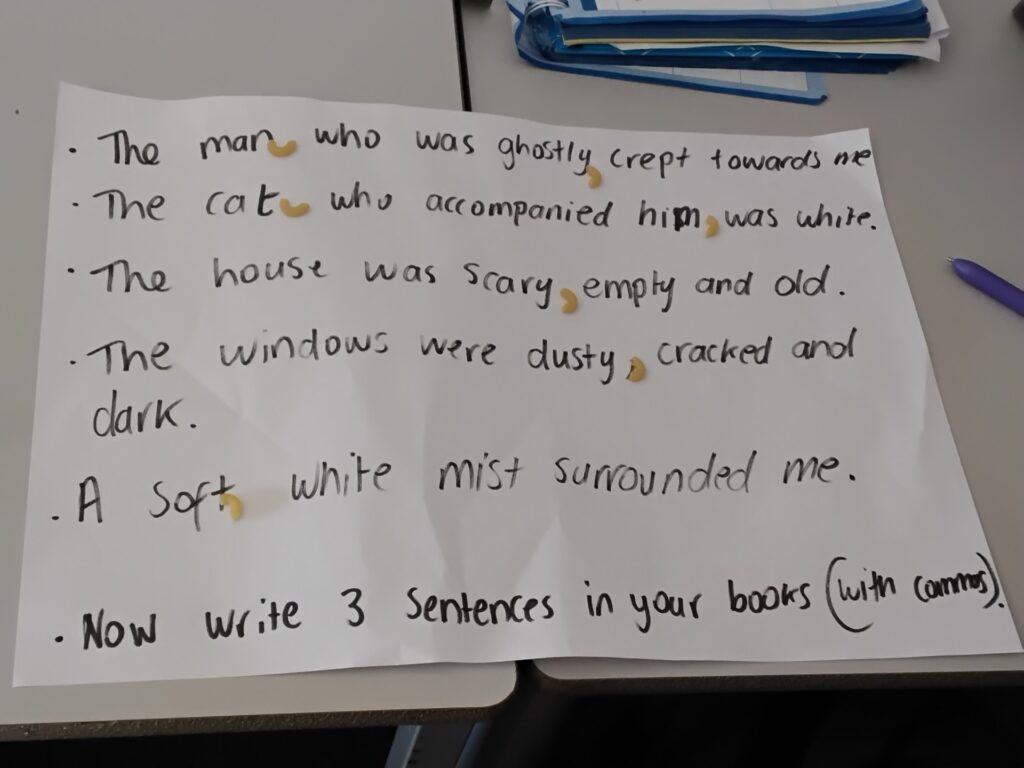 · The man, who was ghostly, crept towards me
· The cat, who accompanied him, was white.
· The house was scary, empty and old.
· The windows were dusty, cracked and
dark.
. A soft, white mist surrounded me.
. Now write 3 sentences in your books (with commas).